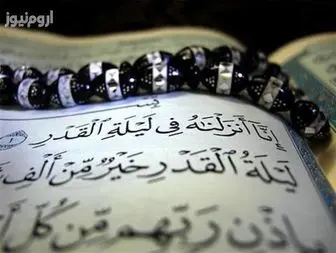 اروم‌نیوز
إِنَّا أَنزَلْنَاهُ فِي لَيْلَةِ الْقَدْرِ
لَيْلَةُ الْقَدْرِ خَيْرٌ مِّنْ أَلْفِ
بِإِذْنِ رَبِّهِم مِّن كُلِّ